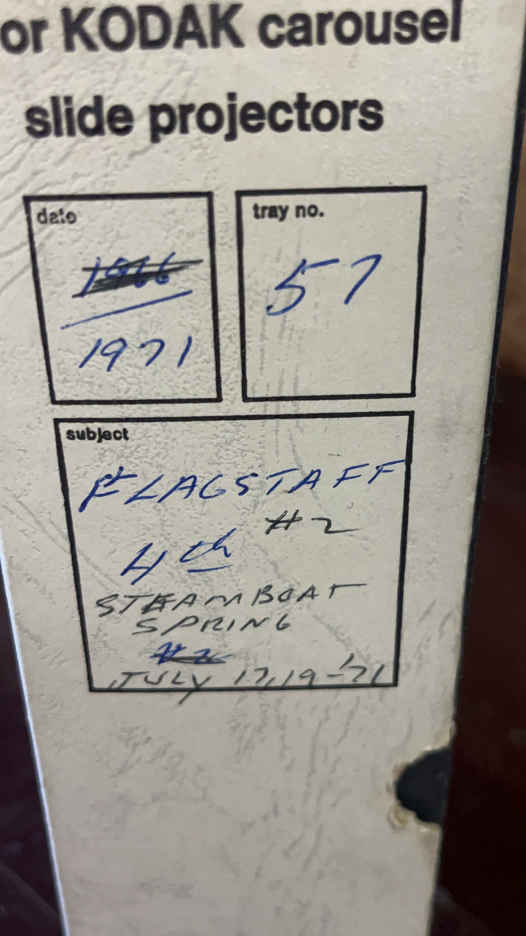 or KODAK carousel
slide projectors
date
1966
1971
tray no.
57
subject
FLAGSTAFF
#2
4th
STEAMBOAT
SPRING
#2
JULY 17,19-'71